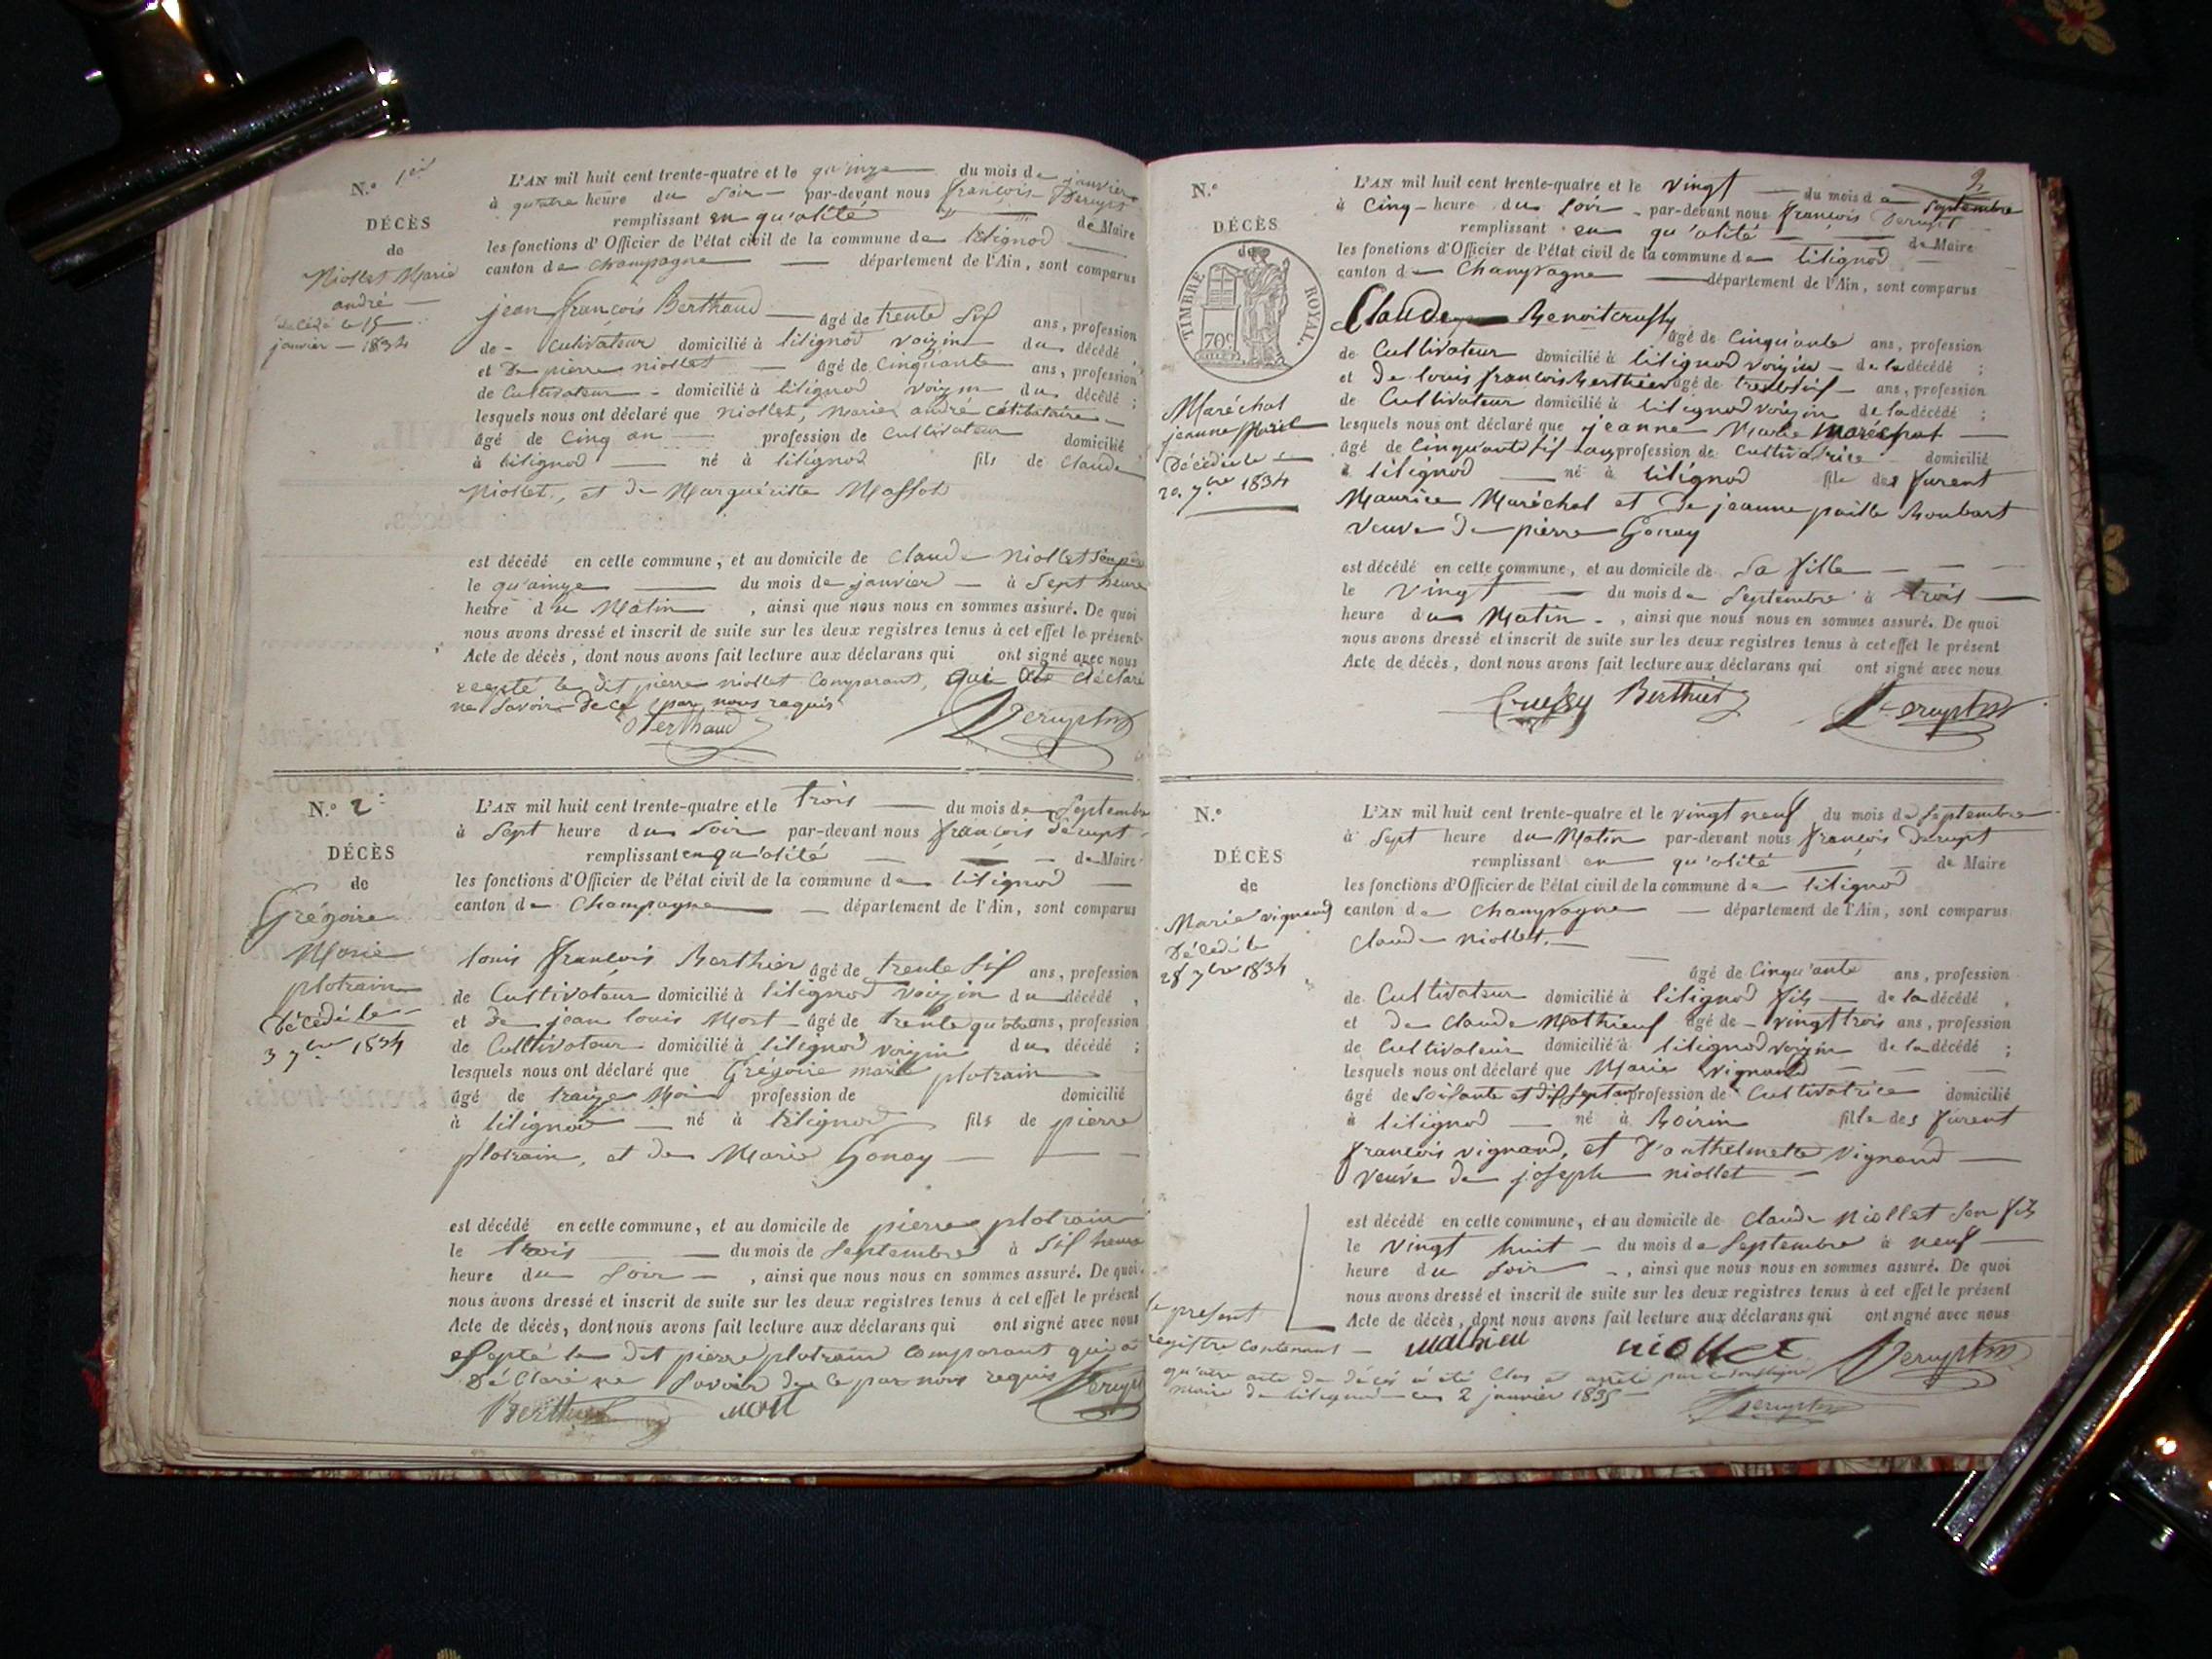 N.º 1er
DÉCÈS
de
Niollet Marie
andré
décédé le 15
janvier 1834
L'AN mil huit cent trente-quatre et le quinze du mois de janvier
à quatre heure du Soir par-devant nous françois Derupt
remplissant en qu'alité de Maire
les fonctions d'Officier de l'état civil de la commune de lilignod
canton de Champagne département de l'Ain, sont comparus
jean françois Berthaud âgé de trente Six ans, profession
de Cultivateur domicilié à lilignod voizin du décédé
et De pierre niollet âgé de Cinquante ans, profession
de Cultivateur domicilié à lilignod voizin du décédé ;
lesquels nous ont déclaré que niollet, marie andré célibataire
âgé de Cinq an profession de Cultivateur domicilié
à lilignod né à lilignod fils de Claude
Niollet, et de Marguéritte Massot
est décédé en cette commune, et au domicile de Claude Niollet Son père
le qu'ainze du mois de janvier à Sept heure
heure du Matin, ainsi que nous nous en sommes assuré. De quoi
nous avons dressé et inscrit de suite sur les deux registres tenus à cet effet le présent
Acte de décès, dont nous avons fait lecture aux déclarans qui ont signé avec nous
le dit pierre niollet Comparant, qui déclaré
ne Savoir de ce par nous requis
Berthaud Derupt
N.º 2
DÉCÈS
de
Grégoire
Marie
plotrain
Décédé le
3 7bre 1834
L'AN mil huit cent trente-quatre et le trois du mois de Septembre
à Sept heure du Soir par-devant nous françois Derupt
remplissant en qu'alité de Maire
les fonctions d'Officier de l'état civil de la commune de lilignod
canton de Champagne département de l'Ain, sont comparus
louis françois Berthier âgé de trente Six ans, profession
de Cultivateur domicilié à lilignod voizin du décédé,
et de jean louis Mort âgé de trente qu'atre ans, profession
de Cultivateur domicilié à lilignod voizin du décédé ;
lesquels nous ont déclaré que Grégoire marie plotrain
âgé de traize Moi profession de domicilié
à lilignod né à lilignod fils de pierre
plotrain, et de Marie Gonay
est décédé en cette commune, et au domicile de pierre plotrain
le trois du mois de Septembre à Six heure
heure du Soir, ainsi que nous nous en sommes assuré. De quoi
nous avons dressé et inscrit de suite sur les deux registres tenus à cet effet le présent
Acte de décès, dont nous avons fait lecture aux déclarans qui ont signé avec nous
le dit pierre plotrain Comparant qui a
Déclaré ne Savoir de ce par nous requis Derupt
Berthier mort
2
N.º
DÉCÈS
de
TIMBRE ROYAL.
70c
Maréchal
jeanne Marie
Décédée le
20 7bre 1834
L'AN mil huit cent trente-quatre et le vingt du mois de Septembre
à Cinq heure du Soir par-devant nous françois Derupt
remplissant en qu'alité de Maire
les fonctions d'Officier de l'état civil de la commune de lilignod
canton de Champagne département de l'Ain, sont comparus
Claude Benoit crussy âgé de Cinquante ans, profession
de Cultivateur domicilié à lilignod voizin de la décédé ;
et De louis françois Berthier âgé de trente Six ans, profession
de Cultivateur domicilié à lilignod voizin de la décédé ;
lesquels nous ont déclaré que jeanne Marie Maréchal
âgé de Cinquante Six ans profession de Cultivatrice domicilié
à lilignod né à lilignod fille des furent
Maurice Maréchal et De jeanne
veuve De pierre Gonay
est décédé en cette commune, et au domicile de Sa fille
le vingt du mois de Septembre à trois
heure du Matin, ainsi que nous nous en sommes assuré. De quoi
nous avons dressé et inscrit de suite sur les deux registres tenus à cet effet le présent
Acte de décès, dont nous avons fait lecture aux déclarans qui ont signé avec nous
Crussy Berthier Derupt
N.º
DÉCÈS
de
Marie vignand
Décédé le
28 7bre 1834
L'AN mil huit cent trente-quatre et le vingt neuf du mois de Septembre
à Sept heure du Matin par-devant nous françois Derupt
remplissant en qu'alité de Maire
les fonctions d'Officier de l'état civil de la commune de lilignod
canton de Champagne département de l'Ain, sont comparus
Claude niollet.
âgé de Cinqu'ante ans, profession
de Cultivateur domicilié à lilignod fils de la décédé,
et de Claude Mathieu âgé de vingt trois ans, profession
de Cultivateur domicilié à lilignod voizin de la décédé ;
lesquels nous ont déclaré que Marie vignand
âgé de Soixante et dix Sept an profession de Cultivatrice domicilié
à lilignod né à fille des furent
françois vignand, et vignand
veuve De joseph niollet
est décédé en cette commune, et au domicile de Claude Niollet Son fils
le vingt huit du mois de Septembre à neuf
heure du Soir, ainsi que nous nous en sommes assuré. De quoi
nous avons dressé et inscrit de suite sur les deux registres tenus à cet effet le présent
Acte de décès, dont nous avons fait lecture aux déclarans qui ont signé avec nous
mathieu niollet Derupt
le présent
registre Contenant
qu'atre acte de décès à été Clos et arrêté par le Soussigné
maire de lilignod ce 2 janvier 1835
Derupt